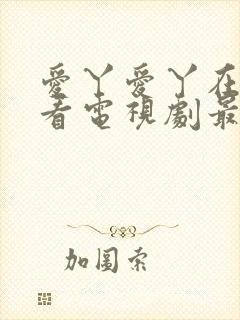 愛丫愛丫在
看電視劇最
加圖索